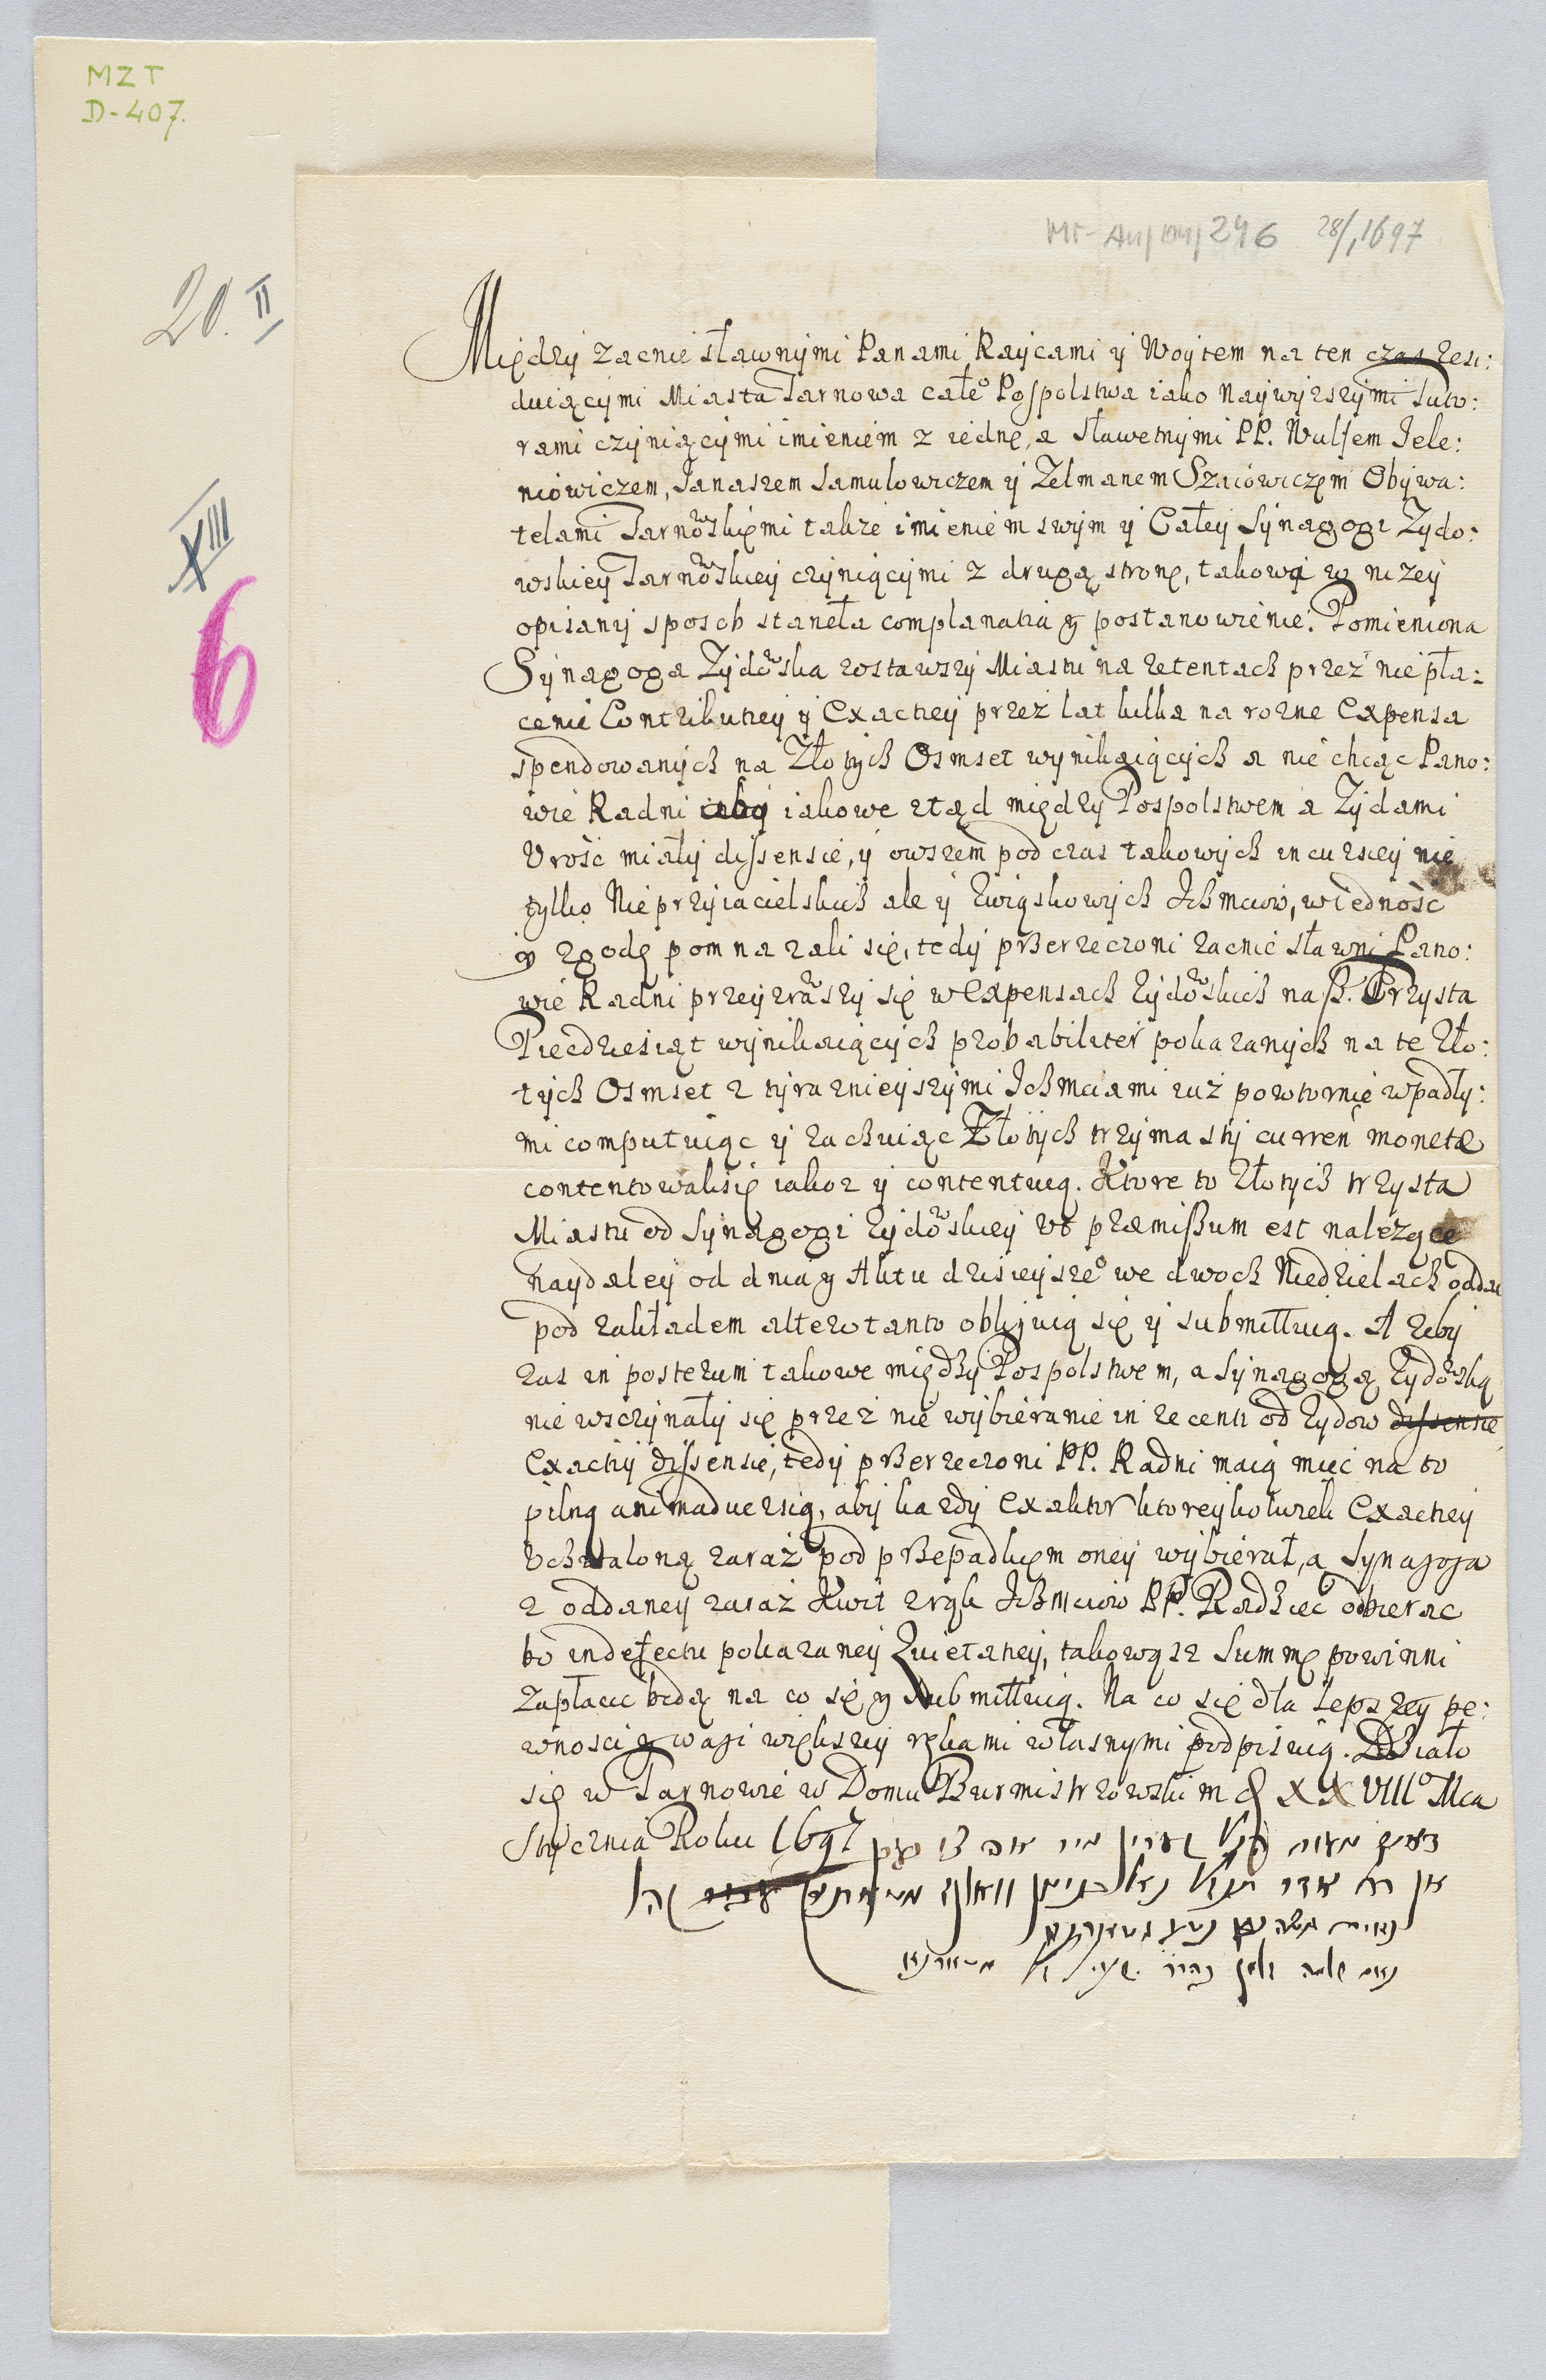 MZT
D-407.
246 28/1 1697
20. II
XIII
6
Między zacnie sławnymi Panami Raycami y Woytem na ten czas resi:
duiącymi Miasta Tarnowa całeo Pospolstwa iako naywyzszymi tuto:
rami czyniącymi imieniem z iednę, a sławetnymi PP. Wulfem Jele:
niowiczem, Janaszem Samulowiczem y Zelmanem Szaiowiczem Obywa:
telami Tarnowskiemi także imieniem swym y Całey Synagogi Zydo:
wskiey Tarnowskiey czyniącymi z drugą stronę, takowa w nizey
opisany sposob stanęła complanatia y postanowienie. Pomieniona
Synagoga Zydowska zostawszy Miastu na retentach przez niepła:
cenie Contributiey y Exactiey przez lat kilka na rozne Expensa
spendowanych na Złotych Osmset wynikaiących a nie chcąc Pano:
wie Radni aby iakowe ztąd między Pospolstwem a Zydami
Urość miały dissensie, y owszem pod czas takowych incursiey nie
tylko Nieprzyiacielskich ale y Związkowych Ichmciow, w iedność
y zgodę pomnazali się, tedy przerzeczoni zacnie sławni Pano:
wie Radni przeyzrawszy się w Expensach Zydowskich na ß. Trzysta
Piecdziesiąt wynikaiących probabiliter pokazanych na te Zło:
tych Osmset z tyraznieyszymi Ichmciami iuż powtornie wpadły:
mi computuiąc y rachuiąc Złotych trzyma sty curren monetæ
contentowali się iakoz y contentuią. Ktore to Złotych trzysta
Miastu od Synagogi Zydowskiey ut præmißum est nalezące
naydaley od dnia y Aktu dzisieyszeo we dwoch Niedzielach oddac
pod zakładem altero tanto obliguią się y submittuią. A zeby
zas in posterum takowe między Pospolstwem, a Synagogą Zydowską
nie wszczynały się przez nie wybieranie in recenti od Zydow dissensie
Exactiy dissensie, tedy przerzeczoni PP. Radni maią mieć na to
pilną animadversią, aby kazdy Exaktor ktoreykolwiek Exactiey
Uchwaloną zaraz pod przepadkiem oney wybierał, a Synagoga
z oddaney zaraz Kwit z rąk Ichmciow PP. Radziec odbierac
bo in defectu pokazaney Quietatiey, takowąsz Summę powinni
zapłacic będą na co się y submittuią. Na co się dla lepszey pe:
wnosci y wagi większey rękami własnymi podpisuią. Działo
się w Tarnowie w Domu Burmistrzowskim D XXVIIIo Mca
Stycznia Roku 1697